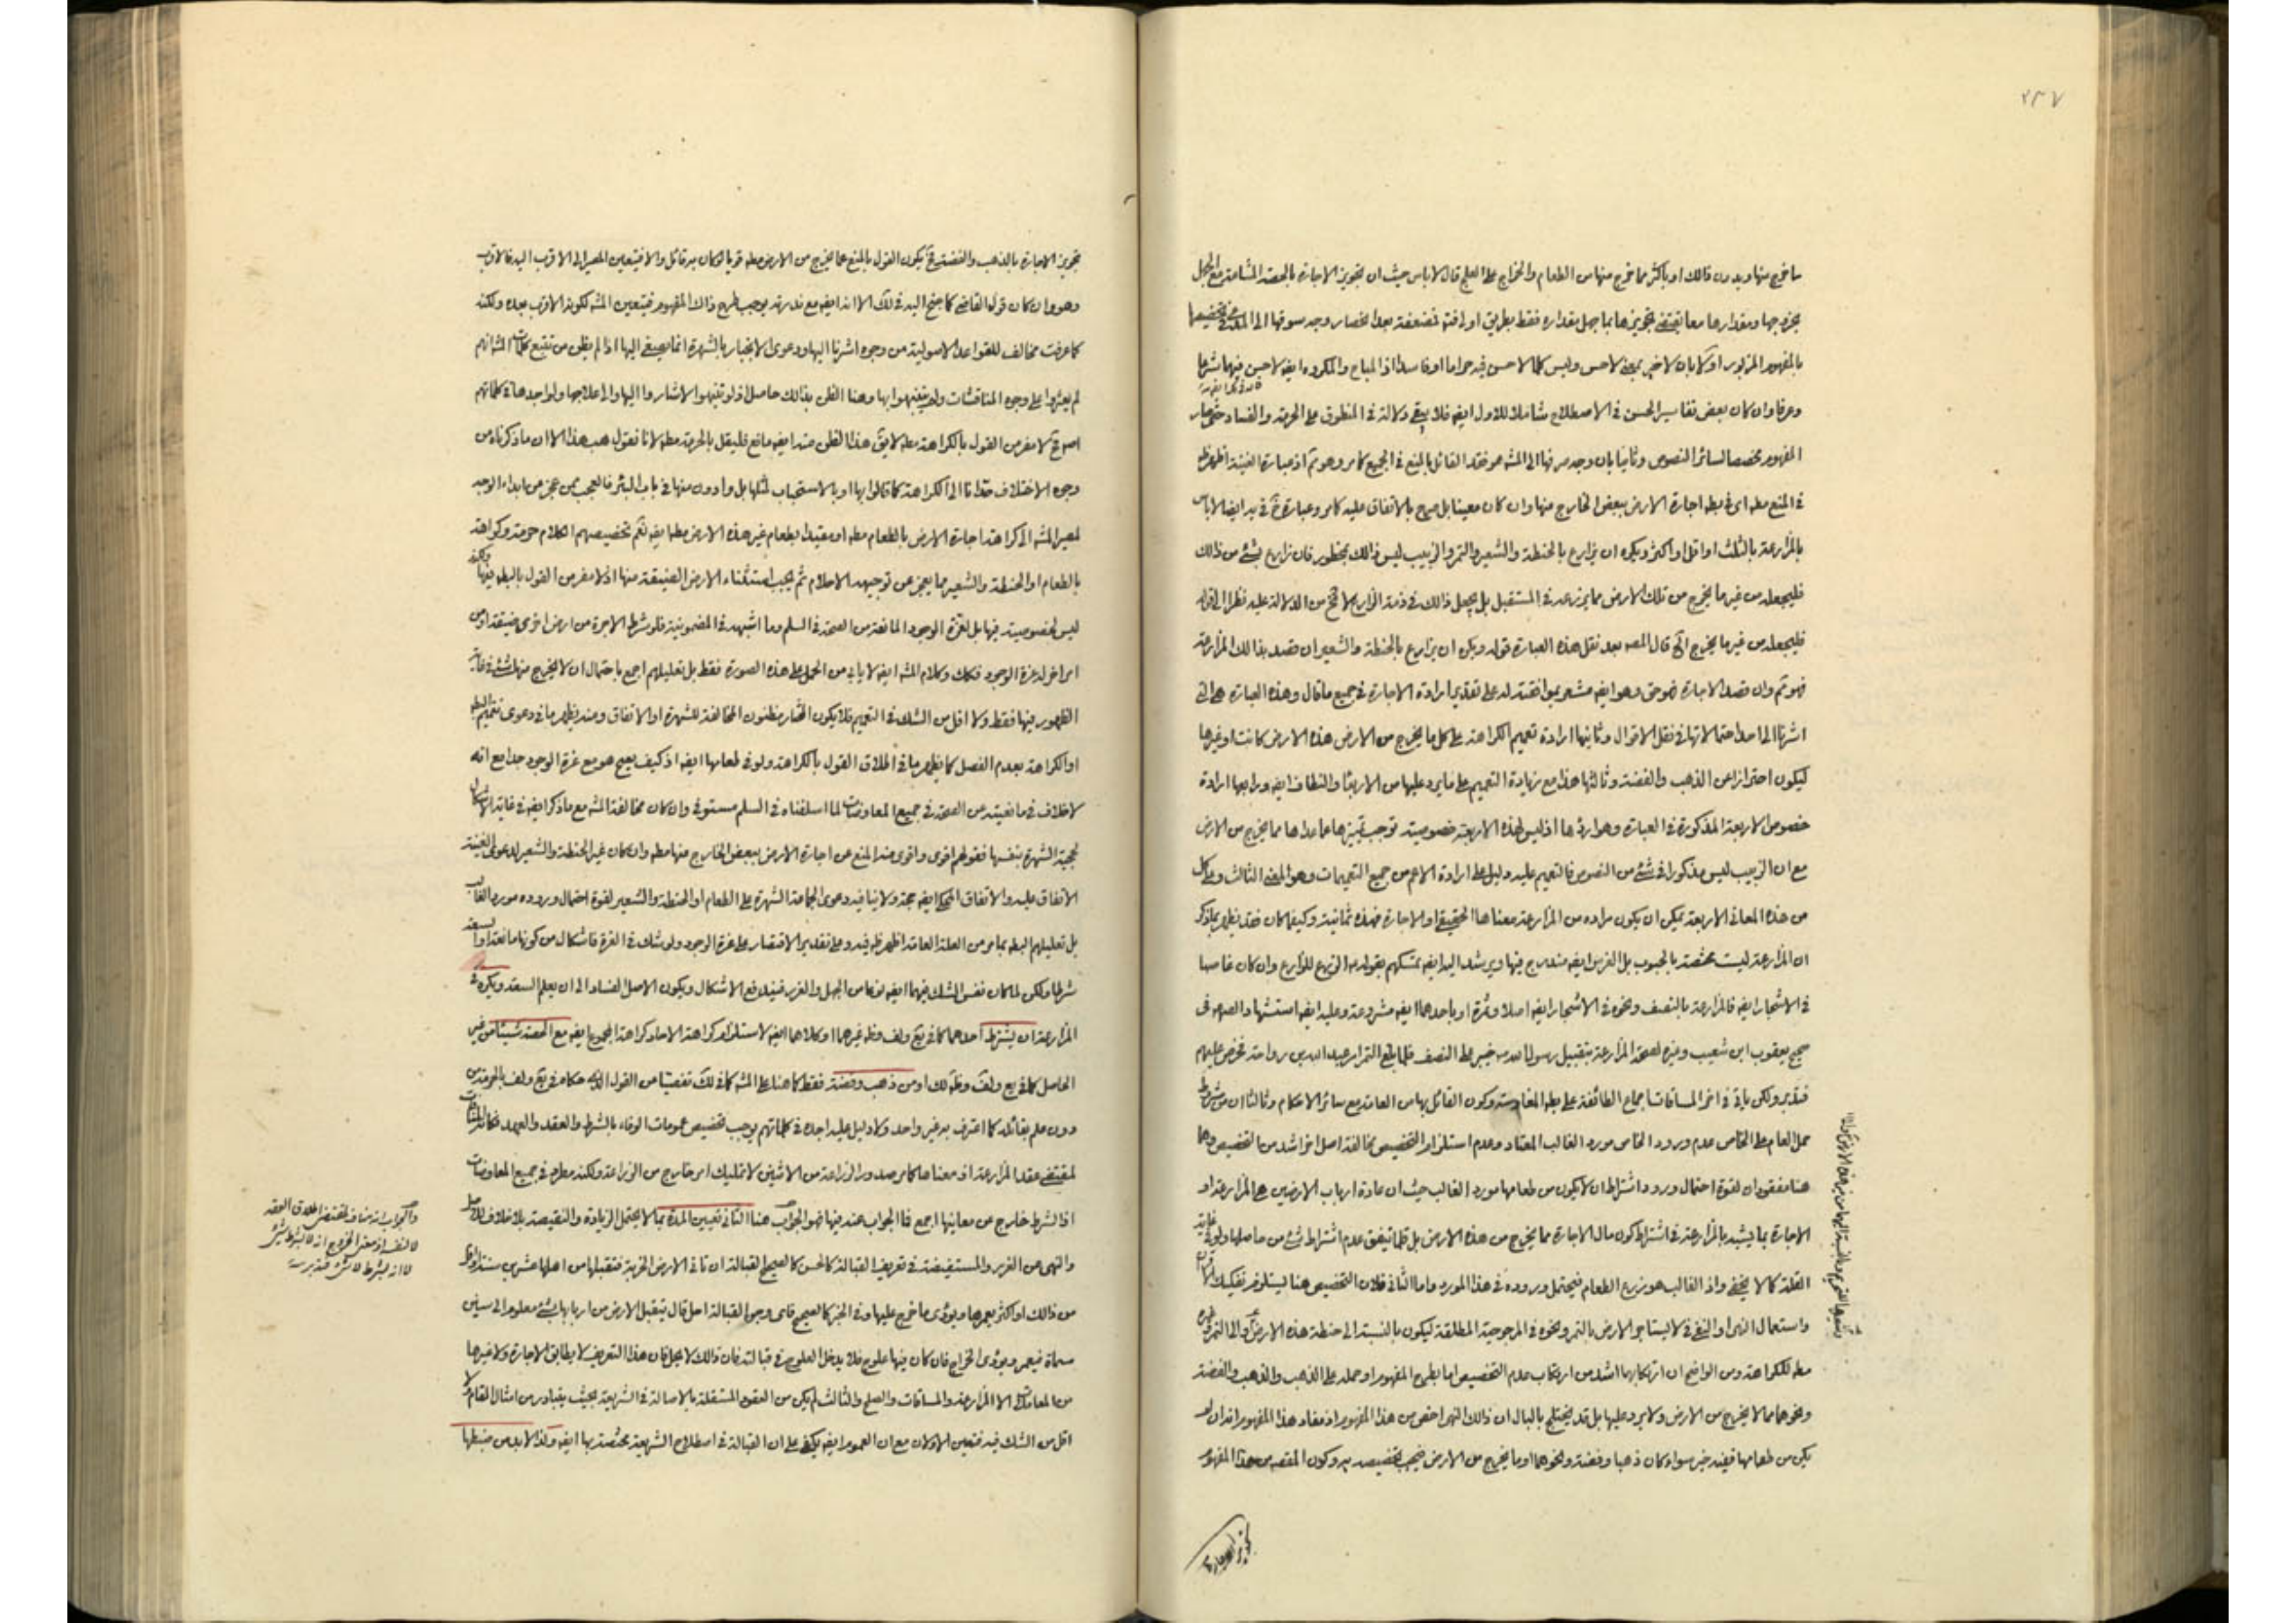 ٢٣٧
ما خرج منها وبدون ذالك او باكثر مما خرج منها من الطعام والخراج على العلج قال لا باس حيث ان تجويز الاجارة بالحصة المشاعة مع الجهل
بخروجها ومقدارها معا تقتضي تجويزها بما جهل مقداره فقط بطريق اولى
بالمفهوم المزبور اولا بان لا خير بمعنى لا حسن وليس كلما لا حسن فيه حراما او فاسدا اذ المباح والمكروه ايضه لا حسن فيهما شرعا
وعرفا وان كان بعض تفاسير الحسن في الاصطلاح شاملا للاول ايضه فلا يبقى دلالة في المنطوق على الحرمة والفساد حتى صار
المفهوم مخصصا لسائر النصوص وثانيا بان وجه صرفها الى المشه هو فقد القائل بالمنع في الجميع كما مر وهو تم اذ عبارة الغنية اظهر
في المنع مطه اي في بطه اجارة الارض ببعض الخارج منها وان كان معينا بل صرح بالاتفاق عليه كما مر وعبارة لا باس
بالمزارعة بالثلث او اقل او اكثر ويكره ان يزارع بالحنطة والشعير والتمر والزبيب ليس ذالك بمحظور فان زارع بشئ من ذالك
فليجعله من غير ما يخرج من تلك الارض مما يزرعه في المستقبل بل يجعل ذالك في ذمة المزارع من الدلالة عليه نظرا الى قوله
فليجعله من غير ما يخرج الخ قال المصه بعد نقل هذه العبارة قوله ويكره ان يزارع بالحنطة والشعير ان قصد بذالك المزارعة
فهو تم وان قصد الاجارة فهو حق وهو ايضه مشعر بموافقته له على تقدير ارادة الاجارة في جميع ما قال وهذه العبارة هي التي
اشرنا الى احد احتمالاتها في نقل الاقوال وثانيها ارادة تعميم الكراهة على كل ما يخرج من الارض هذه الارض كانت او غيرها
ليكون احترازا عن الذهب والفضة وثالثها هذا مع زيادة التعميم على ما يرد عليها من ايضه ورابعها ارادة
خصوص الاربعة المذكورة في العبارة وهو اردها اذ ليس لهذه الاربعة خصوصية توجب تميزها عما عداها مما يخرج من الارض
مع ان الزبيب ليس مذكورا في شئ من النصوص فالتعميم عليه دليل على ارادة الاعم من جميع التعميمات وهو المعنى الثالث وعلى كل
من هذه المعاني الاربعة يمكن ان يكون مراده من المزارعة معناها الحقيقي او الاجارة فهذه ثمانية وكيف كان فقد يظهر مما ذكر
ان المزارعة ليست مختصة بالحبوب بل الغرس ايضه مندرج فيها ويرشد اليه ايضه تمسكهم بقوله الزرع للزارع وان كان غاصبا
في الاشجار ايضه فالمزارعة بالنصف ونحوه في الاشجار ايضه اصلا وثمرة او باحدهما ايضه مشروعة وعليه ايضه استشهادهم في
صحيح يعقوب ابن شعيب وغيره لصحة المزارعة بتقبيل رسول الله صه خيبر بالنصف فلما بلغ الثمر امر عبد الله بن رواحة فخرص عليهم
فتدبر ولكن ياتي في اخر المساقات اجماع الطائفة على بطه المغارسة وكون القائل بها من العامة مع سائر الاحكام وثالثا ان من شروط
حمل العام على الخاص عدم ورود الخاص مورد الغالب المعتاد وعدم استلزام التخصيص مخالفة اصل اخر اشد من التخصيص وهما
هنا مفقودان لقوة احتمال ورود اشتراط ان لا يكون من طعامها مورد الغالب حيث ان عادة ارباب الارضين هي المزارعة او
الاجارة بما يشبه بالمزارعة في اشتراط كون مال الاجارة مما يخرج من هذه الارض بل قلما يتفق عدم اشتراط شئ من حاصلها ولو في غاية
القلة كما لا يخفى واذ الغالب هو زرع الطعام فيحتمل وروده في هذا المورد واما الثاني فلان التخصيص هنا يستلزم تفكيك
واستعمال النهي او النفي في لا يستاجر الارض بالتمر ونحوه في المرجوحية المطلقة ليكون بالنسبة الى حنطة هذه الارض
مطه للكراهة ومن الواضح ان ارتكابها اشد من ارتكاب عدم التخصيص اما بطرح المفهوم او حمله على الذهب والفضة
ونحوهما مما لا يخرج من الارض ولا يرد عليها بل قد يختلج بالبال ان ذالك النهي اخص من هذا المفهوم اذ مفاد هذا المفهوم انه ان لم
يكن من طعامها ففيه خير سواء كان ذهبا وفضة ونحوهما او ما يخرج من الارض فيجب تخصيصه به وكون المقصه من هذا المفهوم
تجويز الاجارة
تجويز الاجارة بالذهب والفضة يكون القول بالمنع عما يخرج من الارض مطه قويا لو كان به قائل والا فيتعين المصير الى الاقرب اليه فالاقرب
وهو وان كان قول القاضي كما جنح اليه في لك الا انه ايضه مع ندرته يوجب طرح ذاك المفهوم فيتعين المشه لكونه الاقرب بعده ولكنه
كما عرفت مخالف للقواعد الاصولية من وجوه اشرنا اليها ودعوى الانجبار بالشهرة انما يصغى اليها اذا لم يظن من تتبع كلمات الشان انهم
لم يعثروا على وجوه المناقشات ولم يتنبهوا بها وهنا الظن بذالك حاصل اذ لو تنبهوا لاشاروا اليها والى علاجها ولو احدهما في كلماتهم
لا مفر من القول بالكراهة مطه لا يق هذا الظن منه ايضه مانع فليقل بالحرمة مطه لانا نقول هب هذا الا ان ما ذكرناه من
وجوه الاختلاف الى الكراهة كما قالوا بها او بالاستحباب لمثلها بل وادون منها في باب البئر فالعجب ممن عجز من ابداء الوجه
لمصير المشه الى كراهة اجارة الارض بالطعام مطه او مقيدا بطعام غير هذه الارض مطه ايضه نعم تخصيصهم الكلام حرمة وكراهة
بالطعام او الحنطة والشعير مما يعجز عن توجيهه الاحلام ثم يجب استثناء الارض الضيقة منها اذ لا مفر من القول بالبطه فيها ولكنه
ليس لخصوصية فيها بل لعزة الوجود المانعة من الصحة في السلم وما اشبهه في المضمونية فلو شرط الاجرة من ارض اخرى ضيقة او من
امر اخر له عزة الوجود فكك وكلام المشه ايضه لا يابى من الحمل على هذه الصورة فقط بل تعليلهم اجمع باحتمال ان لا يخرج منها شئ في غاية
الظهور فيها فقط ولا اقل من الشك في التعميم فلا يكون المختار مظنون المخالفة للشهرة او الاتفاق ومنه يظهر ما في دعوى تعميم البطه
او الكراهة بعدم الفصل كما يظهر ما في اطلاق القول بالكراهة ولو في طعامها ايضه اذ كيف يصح هو مع عزة الوجود جدا مع انه
لا خلاف في مانعيته عن الصحة في جميع المعاوضات لما اسلفناه في السلم مستوفى وان كان مخالفة المشه مع ما ذكر ايضه في غاية الاشكال
لحجية الشهرة بنفسها فقولهم اقوى واقوى منه المنع عن اجارة الارض ببعض الخارج منها مطه وان كان غير الحنطة والشعير لدعوى الغنية
الاتفاق عليه والاتفاق المحكي ايضه حجة ولا ينافيه دعوى الجماعة الشهرة على الطعام او الحنطة والشعير لقوة احتمال وروده مورد الغالب
بل تعليلهم البطه بما مر من العلة العامة اظهر ظه فيه وعلى تقدير الاقتصار على عزة الوجود ولو شك في العزة فاشكال من كونها مانعة او السعة
شرطا ولكن لما كان نفس الشك فيهما ايضه نوعا من الجهل والغرر فيندفع الاشكال ويكون الاصل الفساد الى ان يعلم السعة ويكره في
المزارعة ان يشترط احدهما كما في يع ولف وظه غيرهما او كلاهما ايضه لاستلزام كراهة الاحاد كراهة المجموع ايضه مع الحصة شيئا من غير
الحاصل كما في يع ولف وظه لك او من ذهب وفضة فقط كما هنا على المشه كما في لك تفصيا من القول الذي حكاه في يع ولف بالحرمة من
دون علم بقائله كما اعترف به غير واحد ولا دليل عليه اجده في كلماتهم يوجب تخصيص عمومات الوفاء بالشرط والعقد والعهد
لمقتضى عقد المزارعة اذ معناها كما مر صدور الزراعة من الاثنين لا تمليك امر خارج من الزراعة ولكنه مطرد في جميع المعاوضات
اذ الشرط خارج عن معانيها اجمع فما الجواب عنه فيها فهو الجواب هنا الثاني تعيين المدة بما لا يحتمل الزيادة والنقيصة بلا خلاف
والنهي عن الغرر والمستفيضة في تعريف القبالة كالحسن كالصحيح القبالة ان تاتي الارض الخربة فتقبلها من اهلها عشرين سنة او اقل
من ذالك او اكثر يعمرها ويؤدي ما خرج عليها وفي الخبر كالصحيح فاي وجوه القبالة احل قال يتقبل الارض من اربابها بشئ معلوم الى سنين
مسماة فيعمر ويؤدي الخراج فان كان فيها علوج فلا يدخل العلوج في قبالته فان ذالك لا يحل فان هذا التعريف لا يطابق الاجارة ولا غيرها
من المعاملات الا المزارعة والمساقات والصلح والثالث لم يكن من العقود المستقلة بالاصالة في الشريعة بحيث يتبادر من امثال المقام ولا
اقل من الشك فيه فتعين الاولان مع ان العموم ايضه يكفي على ان القبالة في اصطلاح الشريعة مختصة بها ايضه ولذا لا بد من ضبطها
والجواب انه مناف لمقتضى اطلاق العقد
لا لنفسه اذ معنى الخروج انه لا بشرط شئ
لا انه بشرط لا شئ فتدبر منه